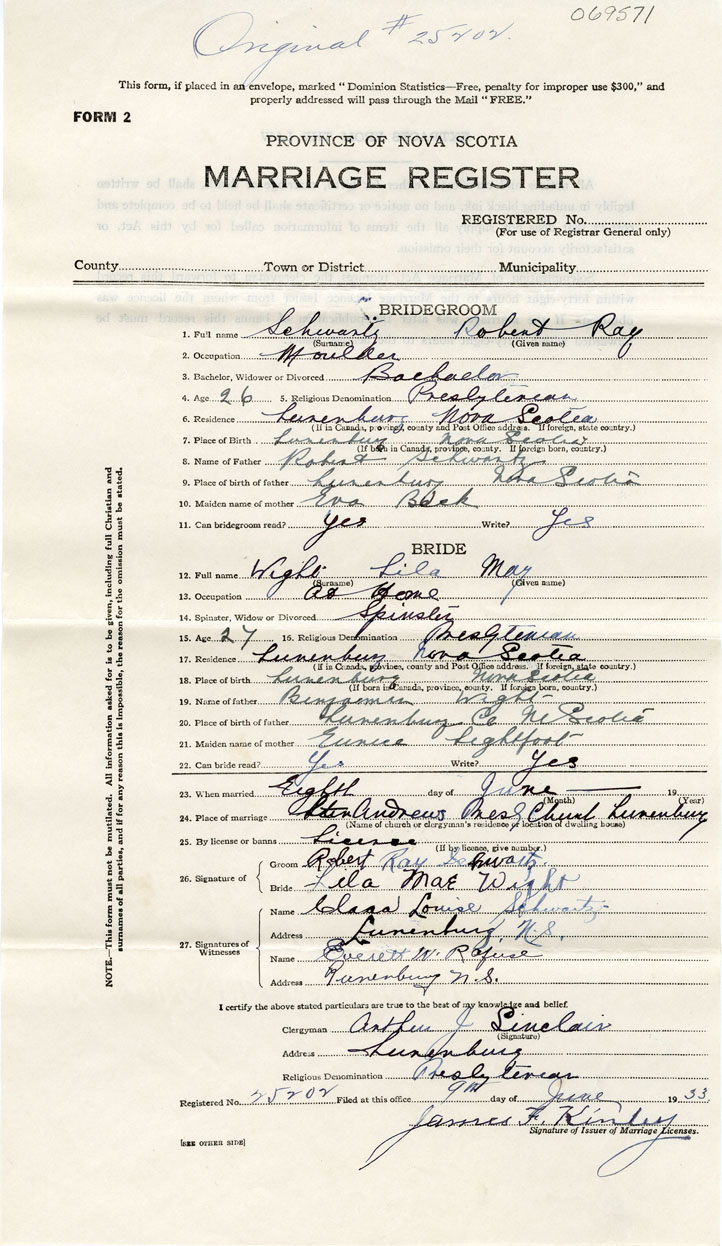 069571
Original # 25202.
This form, if placed in an envelope, marked "Dominion Statistics—Free, penalty for improper use $300," and
properly addressed will pass through the Mail "FREE."
FORM 2
PROVINCE OF NOVA SCOTIA
MARRIAGE REGISTER
REGISTERED No.
(For use of Registrar General only)
County Town or District Municipality
BRIDEGROOM
1. Full name Schwartz Robert Ray
(Surname) (Given name)
2. Occupation Moulder
3. Bachelor, Widower or Divorced Bachelor
4. Age 26 5. Religious Denomination Presbyterian
6. Residence Lunenburg Nova Scotia
(If in Canada, province, county and Post Office address. If foreign, state country.)
7. Place of Birth Lunenburg Nova Scotia
(If born in Canada, province, county. If foreign born, country.)
8. Name of Father Robert Schwartz
9. Place of birth of father Lunenburg Nova Scotia
10. Maiden name of mother Eva Beck
11. Can bridegroom read? Yes Write? Yes
BRIDE
12. Full name Wight Lila May
(Surname) (Given name)
13. Occupation At Home
14. Spinster, Widow or Divorced Spinster
15. Age 27 16. Religious Denomination Presbyterian
17. Residence Lunenburg Nova Scotia
(If in Canada, province, county and Post Office address. If foreign, state country.)
18. Place of birth Lunenburg Nova Scotia
(If born in Canada, province, county. If foreign born, country.)
19. Name of father Benjamin Wight
20. Place of birth of father Lunenburg Co N. Scotia
21. Maiden name of mother Eunice Lightfoot
22. Can bride read? Yes Write? Yes
23. When married Eighth day of June 19
(Month) (Year)
24. Place of marriage Andrews Pres Church Lunenburg
(Name of church or clergyman's residence or location of dwelling house)
25. By license or banns License
(If by licence, give number.)
26. Signature of Groom Robert Ray Schwartz
Bride Lila Mae Wight
27. Signatures of Witnesses Name Clara Louise Schwartz
Address Lunenburg, N.S.
Name Everett W. Rafuse
Address Lunenburg N.S.
I certify the above stated particulars are true to the best of my knowledge and belief.
Clergyman Arthur J Sinclair
(Signature)
Address Lunenburg
Religious Denomination Presbyterian
Registered No. 25202 Filed at this office 9th day of June 19 33
James F. Kinley
Signature of Issuer of Marriage Licenses.
[SEE OTHER SIDE]
NOTE.—This form must not be mutilated. All information asked for is to be given, including full Christian and
surnames of all parties, and if for any reason this is impossible, the reason for the omission must be stated.